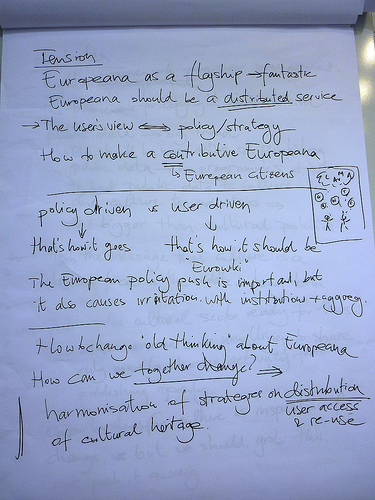 Tension
Europeana as a flagship → fantastic
Europeana should be a distributed service
→ The user's view ⟺ policy/strategy
How to make a contributive Europeana
↳ European citizens
policy driven vs user driven
↓ ↓
that's how it goes that's how it should be
"Eurowiki"
The European policy push is important, but
it also causes irritation with institutions + aggreg.
How to change "old thinking" about Europeana
How can we together change? ⇒
harmonisation of strategies on distribution
user access
& re-use
of cultural heritage.